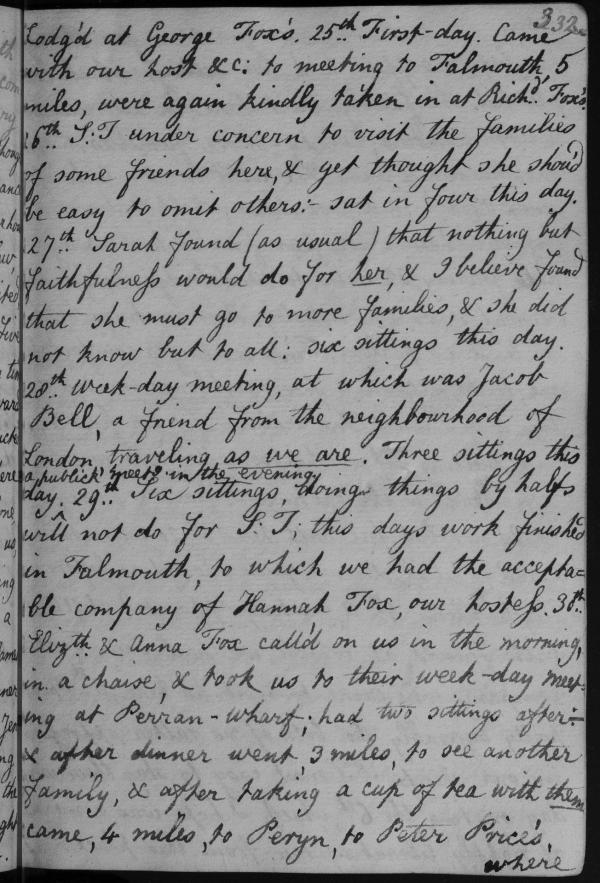 332
Lodg'd at George Fox's. 25th.. First-day. Came
with our host &c: to meeting to Falmouth, 5
miles, were again kindly taken in at Richd. Fox's.
26th.. S:T under concern to visit the families
of some friends here, & yet thought she shou'd
be easy to omit others:- sat in four this day.
27th.. Sarah found (as usual) that nothing but
faithfulness would do for her, & I believe found
that she must go to more families, & she did
not know but to all: six sittings this day.
28th.. week-day meeting, at which was Jacob
Bell, a friend from the neighbourhood of
London, traveling as we are. Three sittings this
a publick meetg. in the evening
day. 29th.. Six sittings, doing things by halfs
will not do for S:T; this days work finish'd
in Falmouth, to which we had the accepta=
ble company of Hannah Fox, our hostess. 30th..
Elizth.. & Anna Fox call'd on us in the morning,
in a chaise, & took us to their week-day meet-
ing at Perran-wharf; had two sittings after:-
& after dinner went, 3 miles, to see another
family, & after taking a cup of tea with them
came, 4 miles, to Peryn, to Peter Price's,
where